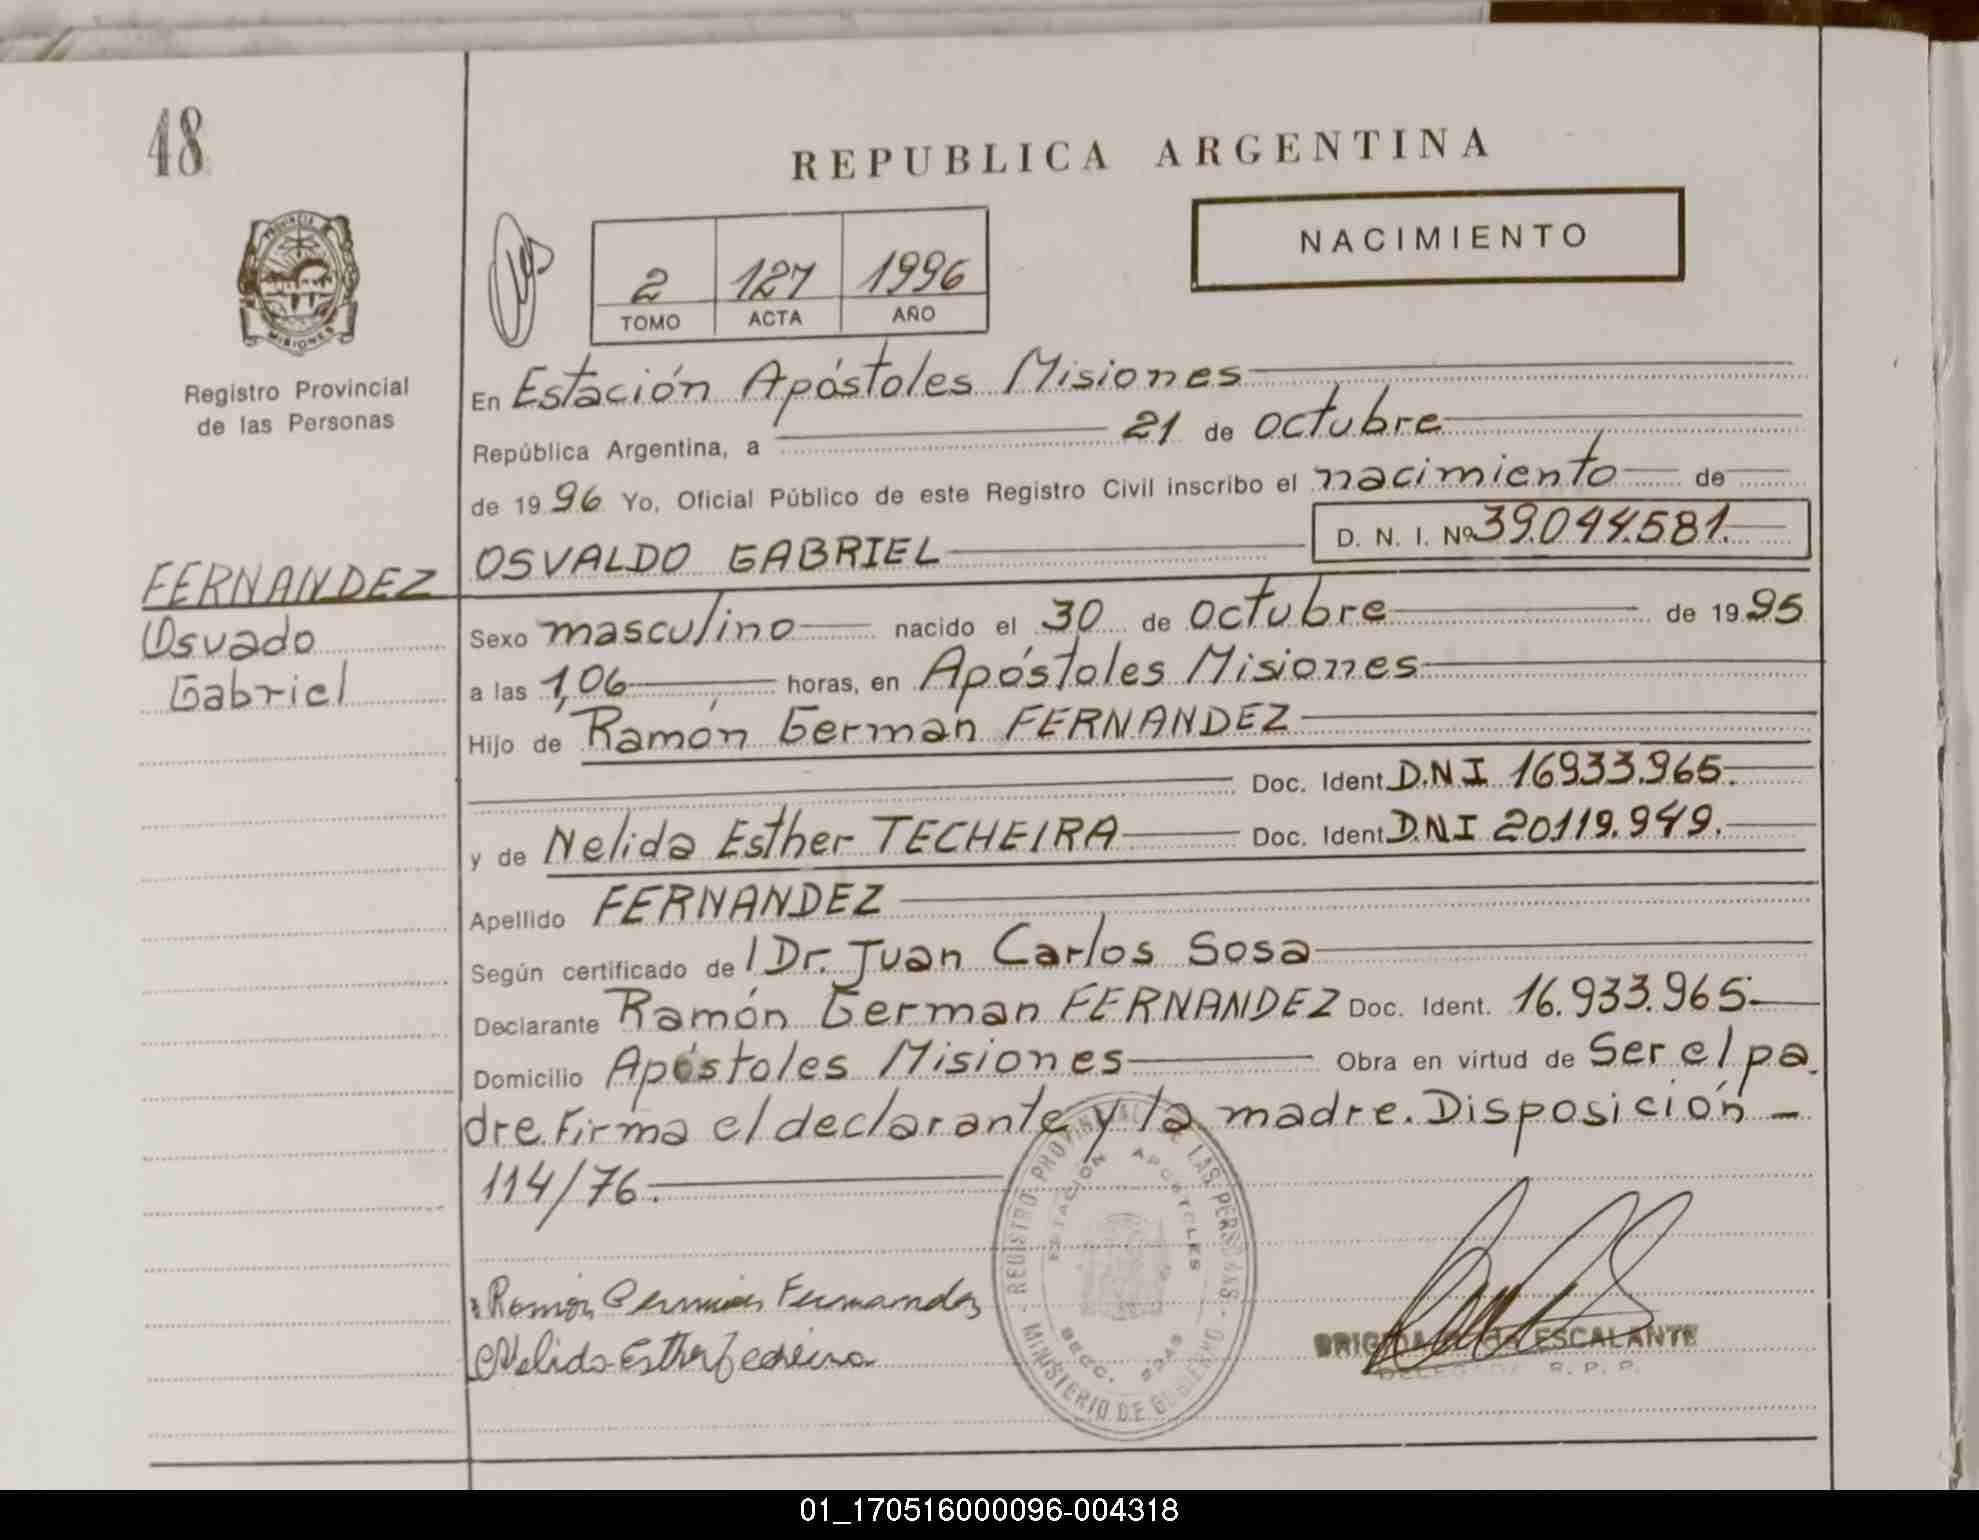 48
REPUBLICA ARGENTINA
NACIMIENTO
PROVINCIA
MISIONES
2 127 1996
TOMO ACTA AÑO
Registro Provincial
de las Personas
En Estación Apóstoles Misiones
República Argentina, a 21 de octubre
de 1996 Yo, Oficial Público de este Registro Civil inscribo el nacimiento de
OSVALDO GABRIEL D. N. I. Nº 39.044.581.
FERNANDEZ
Osvado
Gabriel
Sexo masculino nacido el 30 de octubre de 1995
a las 1,06 horas, en Apóstoles Misiones
Hijo de Ramón German FERNANDEZ
Doc. Ident. D.N.I 16933.965.
y de Nelida Esther TECHEIRA Doc. Ident. D.N.I 20.119.949.
Apellido FERNANDEZ
Según certificado del Dr. Juan Carlos Sosa
Declarante Ramón German FERNANDEZ Doc. Ident. 16.933.965.
Domicilio Apóstoles Misiones Obra en virtud de Ser el pa
dre. Firma el declarante y la madre. Disposición
114/76.
Ramón German Fernandez
Nelida Esther Techeira
REGISTRO PROVINCIAL DE LAS PERSONAS
MINISTERIO DE GOBIERNO
ESTACION APOSTOLES
SECC.
ESCALANTE
R. P. P.
01_170516000096-004318